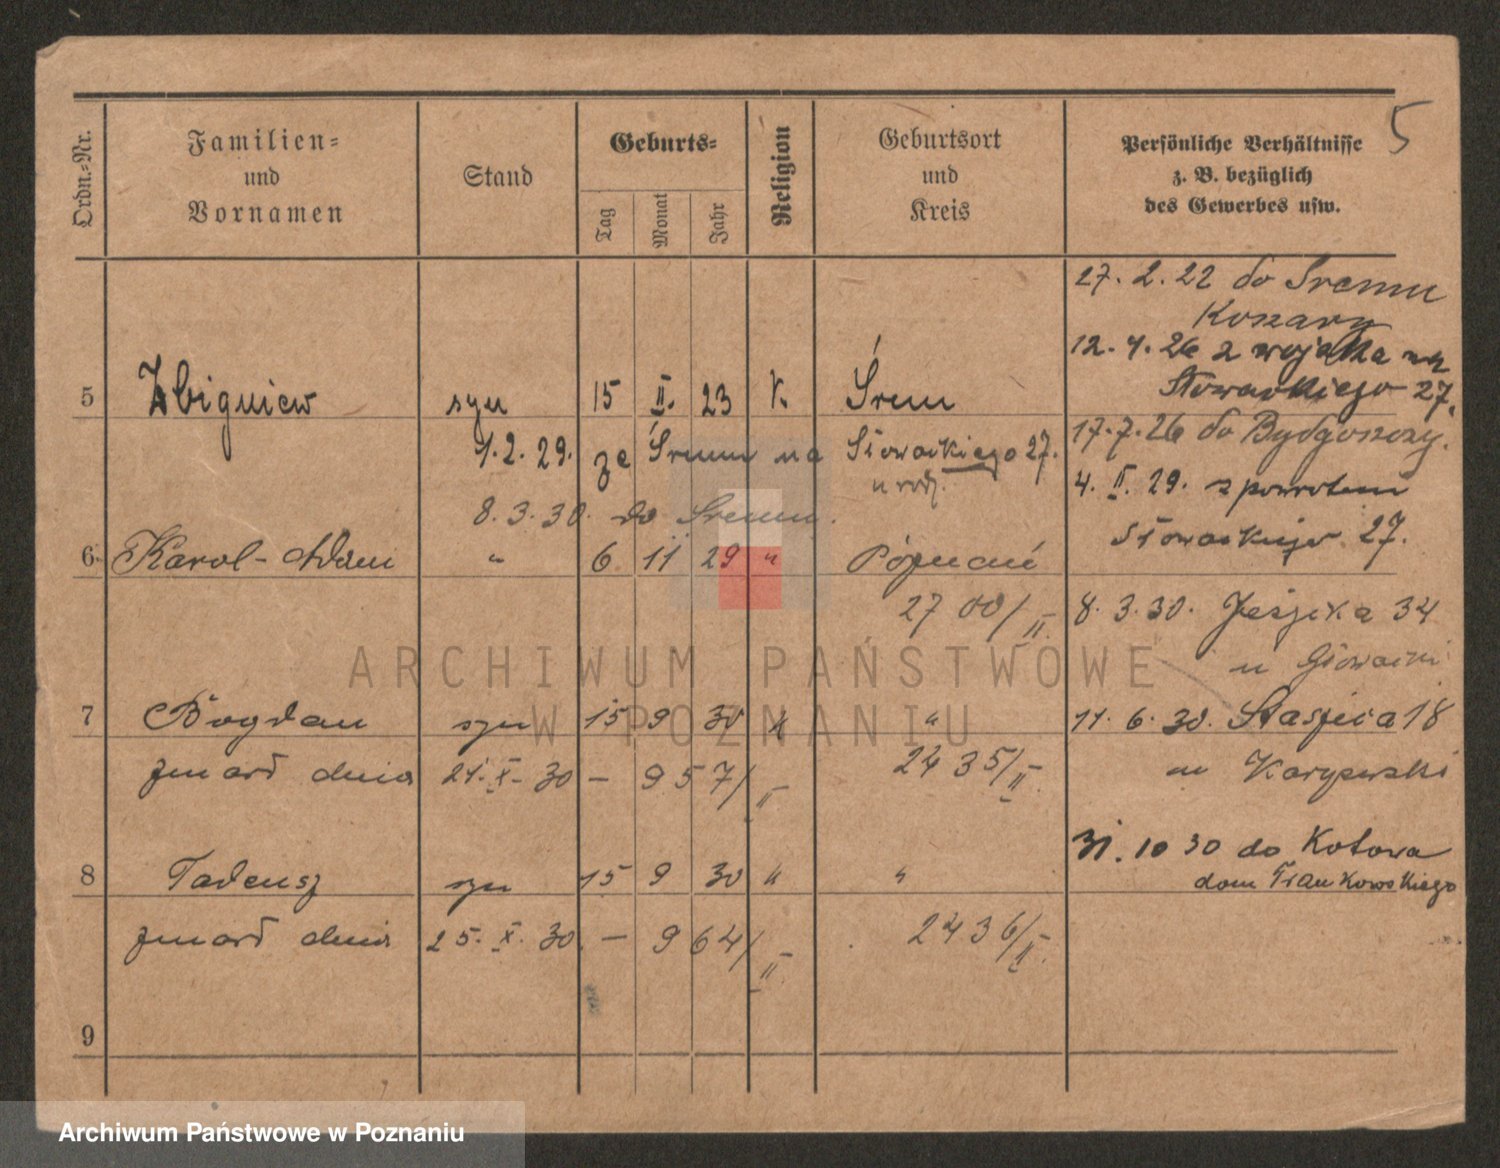 5
Ordn.=Nr.
Familien=
und
Vornamen
Stand
Geburts=
Tag
Monat
Jahr
Religion
Geburtsort
und
Kreis
Persönliche Verhältnisse
z. B. bezüglich
des Gewerbes usw.
27. 2. 22 do Śremu
Koszary
12. 4. 26 z wojska na
Słowackiego 27.
5 Zbigniew syn 15 II. 23 K. Śrem
17.7.26 do Bydgoszczy.
1.2.29. ze Śremu na Słowackiego 27.
u rodz.
4. II. 29. z powrotem
8.3.30. do Śremu.
Słowackiego 27.
6. Karol-Adam " 6 11 29 " Poznań
2700/II.
8. 3. 30. Jeżycka 34
u Głowacki
7 Bogdan syn 15 9 30 k "
11. 6. 30. Staszica 18
zmarł dnia 21. X. 30 — 957/II
2435/II.
31. 10 30 do Kotowa
dom Frankowskiego
8 Tadeusz syn 15 9 30 " "
zmarł dnia 25. X. 30. — 964/II
2436/II.
9
ARCHIWUM PAŃSTWOWE
W POZNANIU
Archiwum Państwowe w Poznaniu